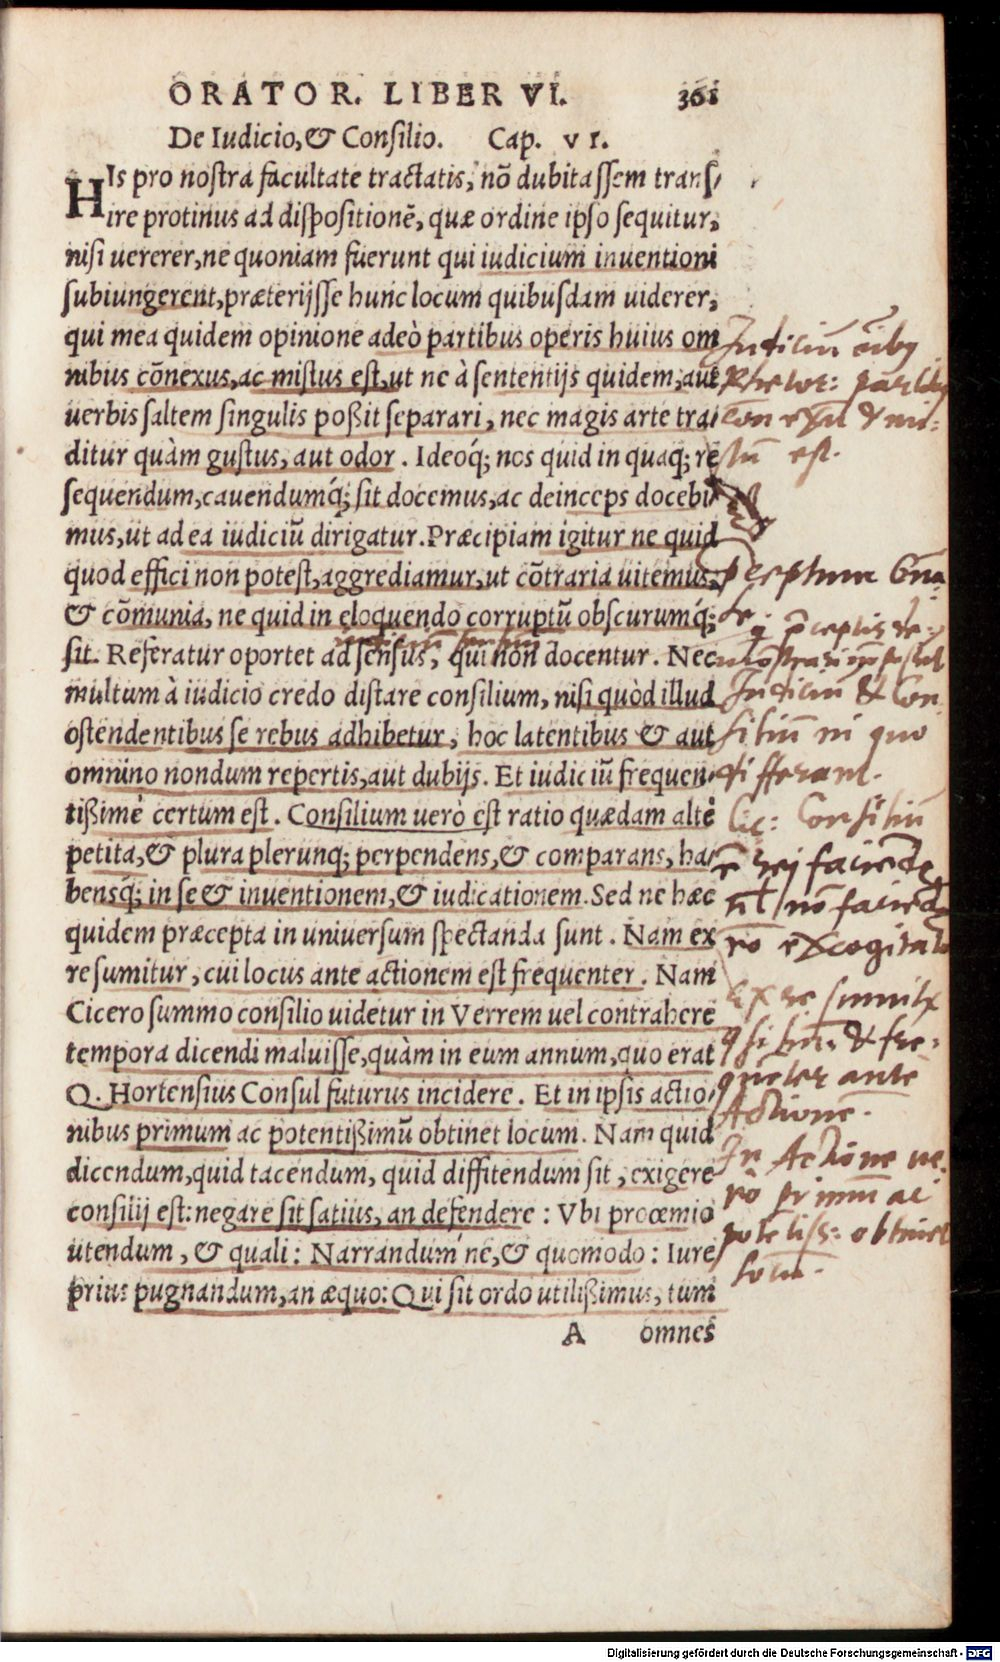 ORATOR. LIBER VI. 361
De Iudicio, & Consilio. Cap. VI.
HIs pro nostra facultate tractatis, nõ dubitassem trans-
ire protinus ad dispositionē, quæ ordine ipso sequitur,
nisi uererer, ne quoniam fuerunt qui iudicium inuentioni
subiungerent, præterijsse hunc locum quibusdam uiderer,
qui mea quidem opinione adeò partibus operis huius om
nibus cõnexus, ac mistus est, ut ne à sententijs quidem, aut
uerbis saltem singulis poßit separari, nec magis arte tra-
ditur quàm gustus, aut odor. Ideoq́; nos quid in quaq́; re
sequendum, cauendumq́; sit docemus, ac deinceps docebi-
mus, ut ad ea iudiciū dirigatur. Præcipiam igitur ne quid
quod effici non potest, aggrediamur, ut cõtraria uitemus,
& cõmunia, ne quid in eloquendo corruptū obscurumq́;
sit. Referatur oportet ad sensus, qui non docentur. Nec
multum à iudicio credo distare consilium, nisi quòd illud
ostendentibus se rebus adhibetur, hoc latentibus & aut
omnino nondum repertis, aut dubijs. Et iudiciū frequen-
tißimè certum est. Consilium uerò est ratio quædam altè
petita, & plura plerunq; perpendens, & comparans, ha-
bensq́; in se & inuentionem, & iudicationem. Sed ne hæc
quidem præcepta in uniuersum spectanda sunt. Nam ex
re sumitur, cui locus ante actionem est frequenter. Nam
Cicero summo consilio uidetur in Verrem uel contrahere
tempora dicendi maluisse, quàm in eum annum, quo erat
Q. Hortensius Consul futurus incidere. Et in ipsis actio-
nibus primum ac potentißimū obtinet locum. Nam quid
dicendum, quid tacendum, quid diffitendum sit, exigere
consilij est: negare sit satius, an defendere: Vbi proœmio
utendum, & quali: Narrandum ne, & quomodo: Iure
prius pugnandum, an æquo: Qui sit ordo utilißimus, tum
A omnes
Iudiciū oīby
Rhetor: partiby
conexū & mi:
stū est.
Iudiciū & Con
siliū in quo
differant.
Consiliū
ē rei faciendę
nō faciendę
rō excogitata
Ex re sumitr
& fre:
quēter ante
Actionē.
In Actione ve:
rò primū ac
potētiss: obtinet
locū.